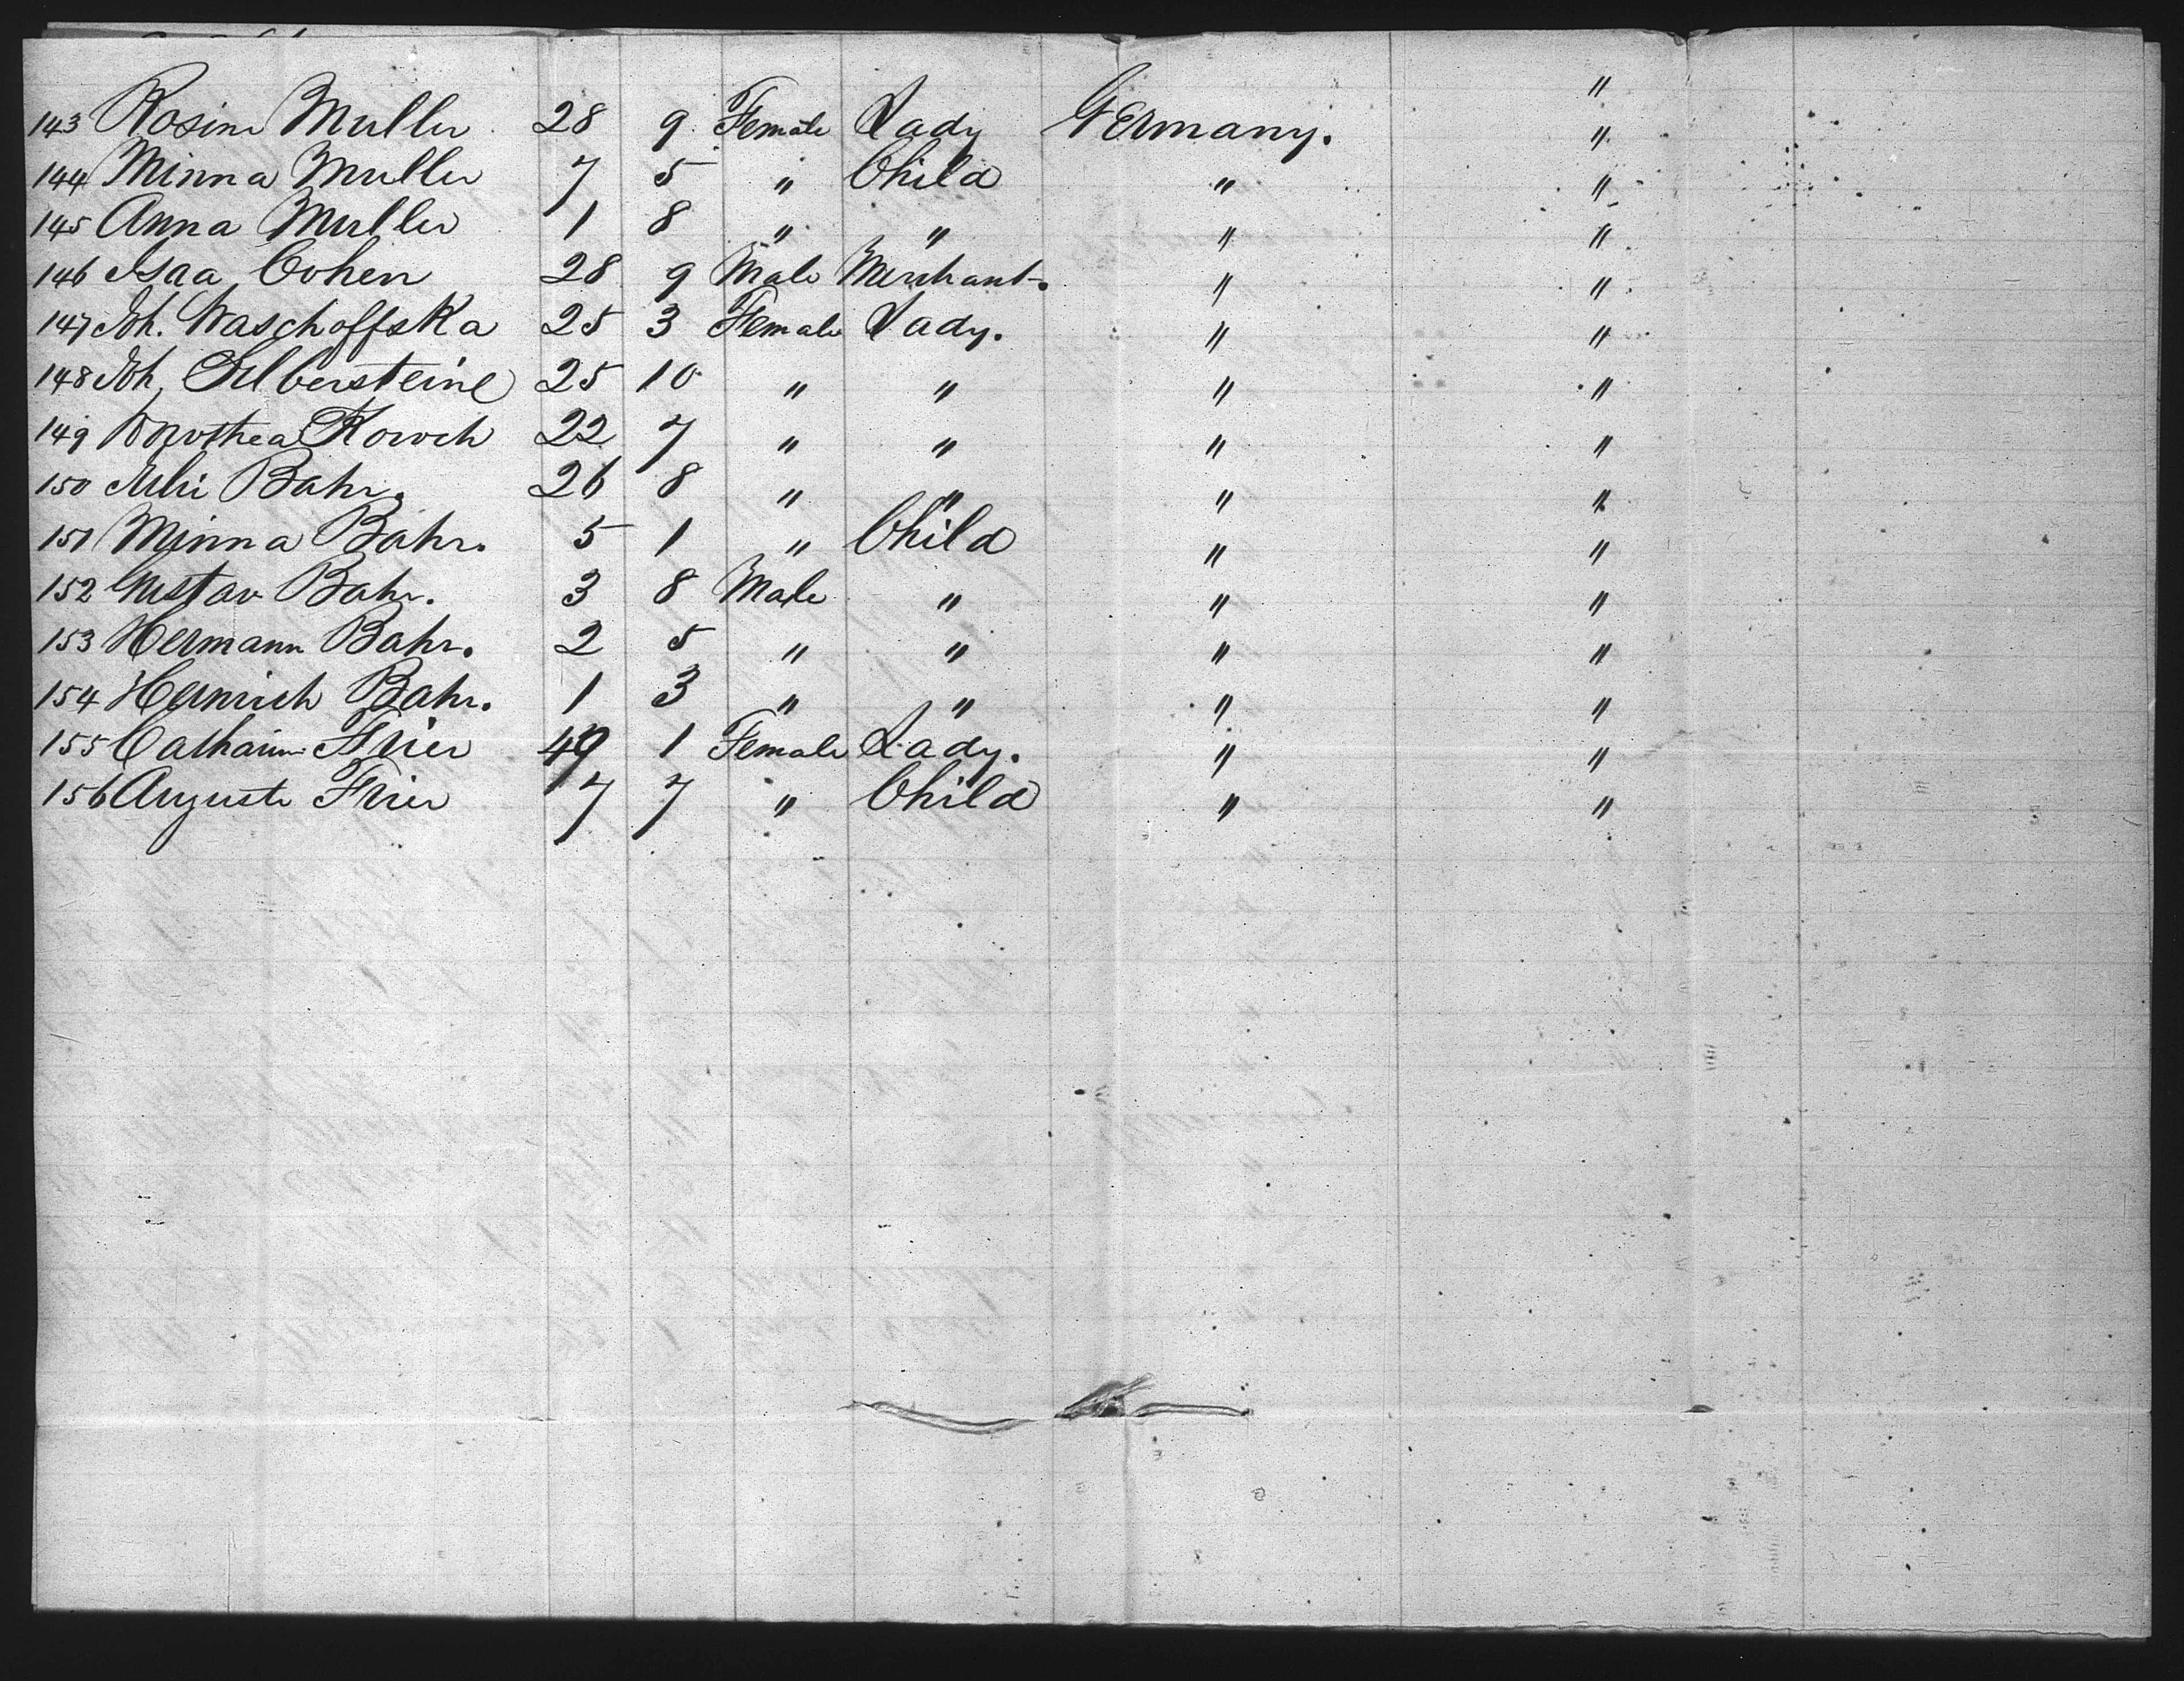 "
143 Rosine Muller 28 9 Female Lady Germany. "
144 Minna Muller 7 5 " Child " "
145 Anna Muller 1 8 " " " "
146 Isaa Cohen 28 9 Male Merchant. " "
147 Joh. Waschoffska 25 3 Female Lady. " "
148 Joh. Silbersteine 25 10 " " " "
149 Dorothea 22 7 " " " "
150 Bahr. 26 8 " " " "
151 Minna Bahr. 5 1 " Child " "
152 Gustav Bahr. 3 8 Male " " "
153 Hermann Bahr. 2 5 " " " "
154 Heinrich Bahr. 1 3 " " " "
155 Catharine Frier 49 1 Female Lady. " "
156 Auguste Frier 7 7 " Child " "